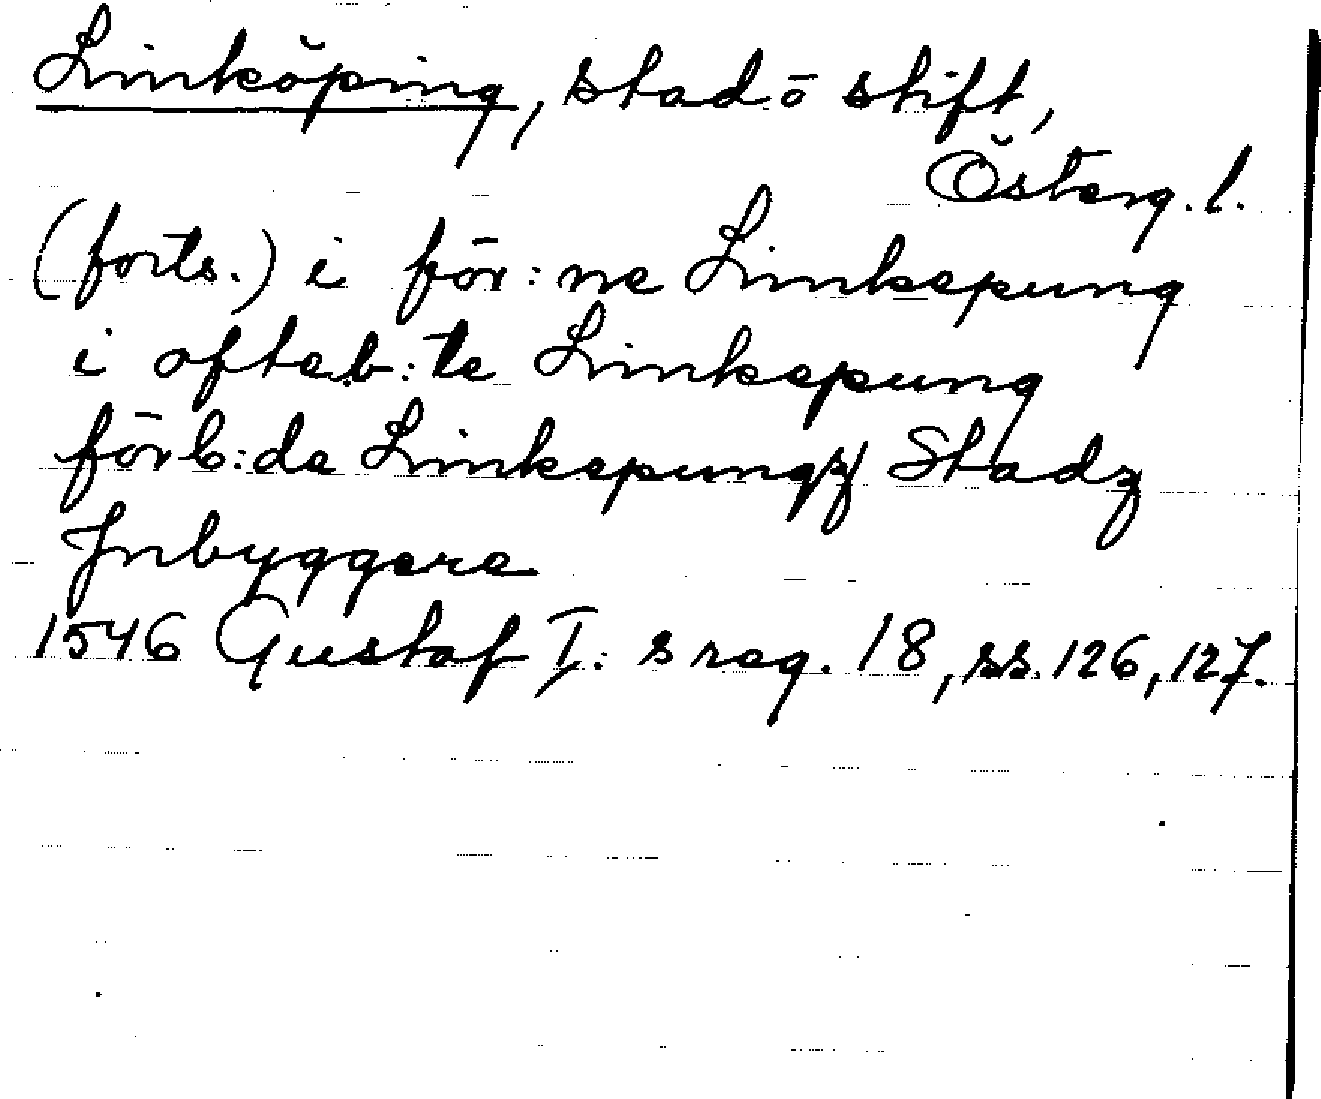 Linköping, stad o stift,
Österg. l.
(forts.) i för:ne Linkepung
i ofteb:te Linkepung
förb:da Linkepungz Stadz
Jnbyggere
1546 Gustaf I:s reg. 18, ss. 126, 127.